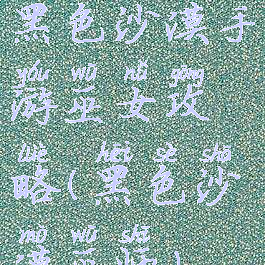 黑色沙漠手
yóu wū nǚ gōng
游巫女攻
lüè hēi sè shā
略(黑色沙
mò wū shī
漠巫师)